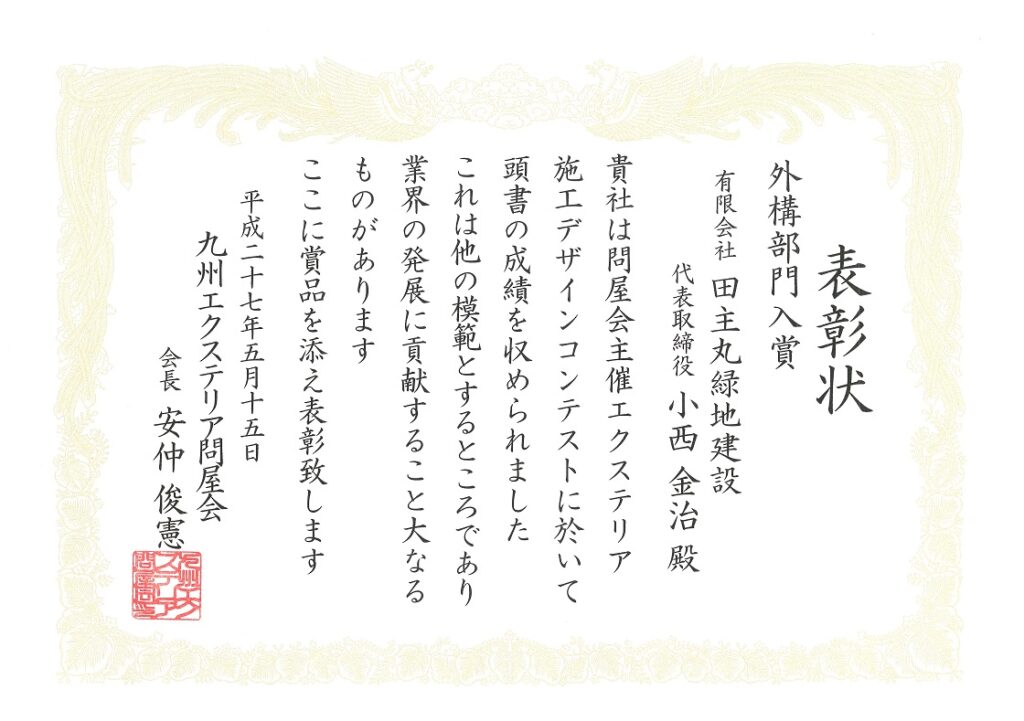 表彰状
外構部門入賞
有限会社 田主丸緑地建設
代表取締役 小西 金治 殿
貴社は問屋会主催エクステリア
施工デザインコンテストに於いて
頭書の成績を収められました
これは他の模範とするところであり
業界の発展に貢献すること大なる
ものがあります
ここに賞品を添え表彰致します
平成二十七年五月十五日
九州エクステリア問屋会
会長 安仲 俊憲